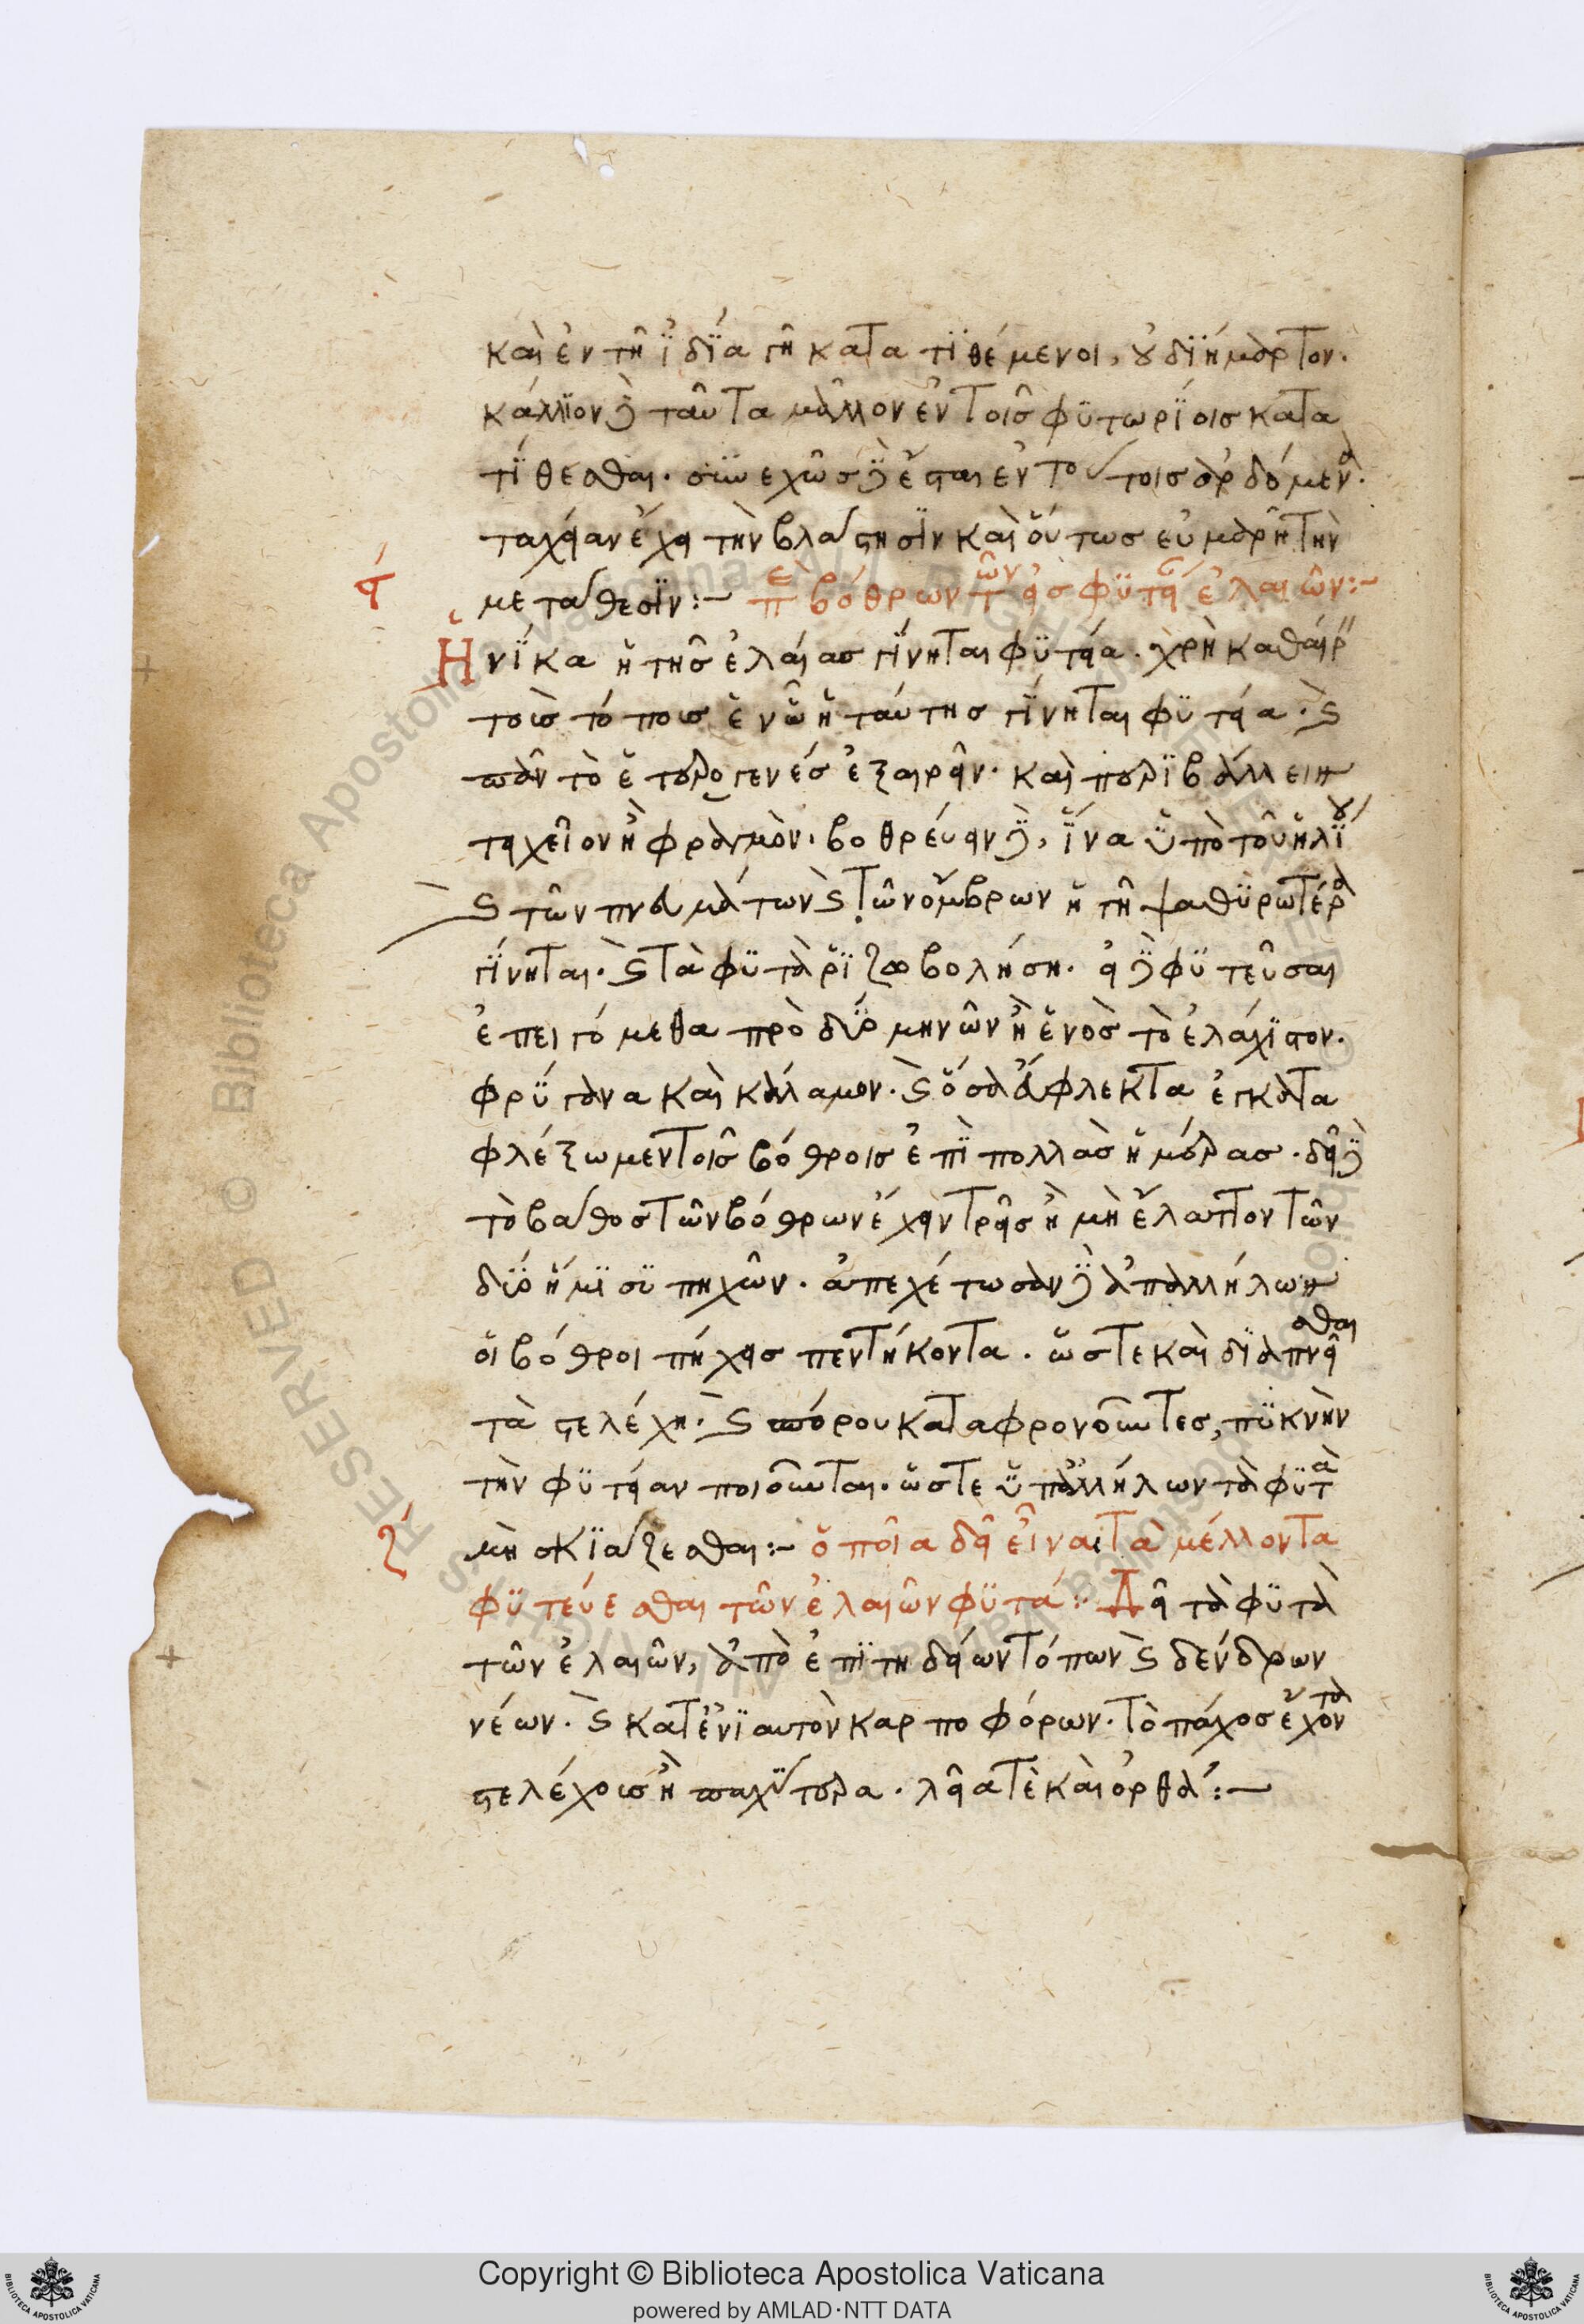 καὶ ἐν τῆ ἰδία γῆ κατατιθέμενοι, οὐ διήμαρτον.
κάλλιον δὲ ταῦτα μᾶλλον ἐν τοῖς φυτωρίοις κατα
τίθεσθαι. συνεχῶς δὲ ἔσται ἐν τούτοις ἀρδόμενα.
ταχεῖαν ἕχει τὴν βλάστησιν καὶ οὕτως εὐμαρῆ τὴν
ϛ
μετάθεσιν:~ περὶ βόθρων τῶν εἰς φυτείαν ἐλαιῶν:~
Ἡνίκα ἡ τῆς ἐλαίας γίνηται φυτεία. χρὴ καθαίρειν
τοὺς τόπους ἐν ᾧ ἡ ταύτης γίνηται φυτεία. καὶ
πᾶν τὸ ἑτερογενὲς ἐξαιρεῖν. καὶ περιβάλλειν
τειχεῖον ἢ φραγμόν. βοθρεύειν δὲ, ἵνα ὑπὸ τοῦ ἡλίου
καὶ τῶν πνευμάτων καὶ τῶν ὄμβρων ἡ γῆ ψαθυρωτέρα
γίνηται. καὶ τὰ φυτὰ ῥιζοβολήση. εἰ δὲ φυτεῦσαι
ἐπειγόμεθα πρὸ δύο μηνῶν ἢ ἑνὸς τὸ ἐλάχιστον.
φρύγανα καὶ κάλαμον. καὶ ὅσα εὔφλεκτα ἐγκατα
φλέξωμεν τοῖς βόθροις ἐπὶ πολλὰς ἡμέρας. δεῖ δὲ
τὸ βάθος τῶν βόθρων ἔχειν τρεῖς ἢ μὴ ἔλαττον τῶν
δύο ἥμισυ πηχῶν. ἀπεχέτωσαν δὲ ἀπαλλήλων
οἱ βόθροι πήχεις πεντήκοντα. ὥστε καὶ διαπνεῖσθαι
τὰ στελέχη. καὶ σπόρου καταφρονοῦντες, πυκνὴν
τὴν φυτείαν ποιοῦνται. ὥστε ὑπαλλήλων τὰ φυτὰ
ζ
μὴ σκιάζεσθαι:~ ὁποῖα δεῖ εἶναι τὰ μέλλοντα
φυτεύεσθαι τῶν ἐλαιῶν φυτά: Δεῖ τὰ φυτὰ
τῶν ἐλαιῶν, ἀπὸ ἐπιτηδείων τόπων καὶ δένδρων
νέων. καὶ κατ ἐνιαυτὸν καρποφόρων. τὸ πάχος ἔχοντα
στελέχους ἢ παχύτερα. λεῖα τὲ καὶ ὀρθά:~
Copyright © Biblioteca Apostolica Vaticana
powered by AMLAD·NTT DATA